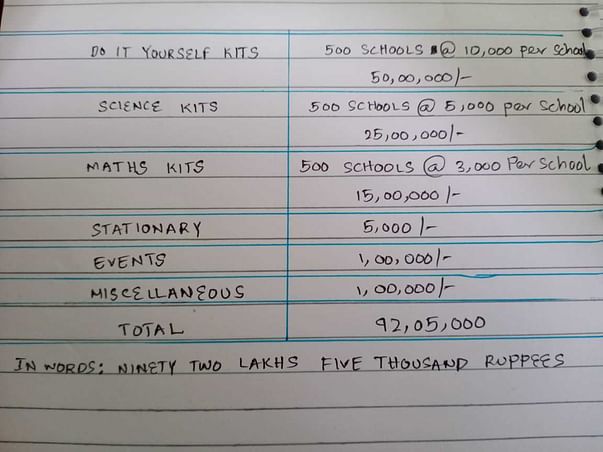 DO IT YOURSELF KITS 500 SCHOOLS @ 10,000 per school
50,00,000/-
SCIENCE KITS 500 SCHOOLS @ 5,000 per school
25,00,000/-
MATHS KITS 500 SCHOOLS @ 3,000 Per School
15,00,000/-
STATIONARY 5,000/-
EVENTS 1,00,000/-
MISCELLANEOUS 1,00,000/-
TOTAL 92,05,000
IN WORDS: NINETY TWO LAKHS FIVE THOUSAND RUPPEES